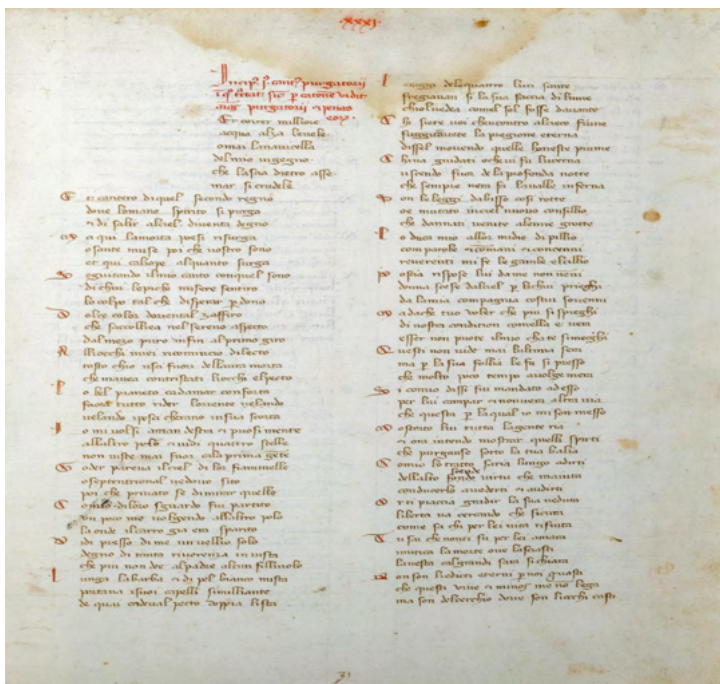 .xxxi.
Incipit p. cant. purgatorii
Er correr milliore
acqua alza le uele
omai la nauicella
del mio ingegno
che lassa dietro asse
mar si crudele
E cantero di quel secondo regno
doue lomano spirito si purga
e di salir al ciel diuenta degno
a qui la morta poesi resurga
o sante muse poi che uostro sono
et qui caliope alquanto surga
S eguitando il mio canto con quel sono
di chui le piche misere sentiro
lo colpo tal che disperar perdono
D olce color doriental zaffiro
che saccogliea nel sereno aspecto
dal mezo puro infin al primo giro
A lliocchi miei ricomincio dilecto
tosto chio usci fuor dellaura morta
che mauea contristati liocchi el pecto
L o bel pianeto cadamar conforta
faceua tutto rider loriente
uelando ipesci cherano in sua scorta
I o mi uolsi aman destra e puosi mente
allaltro polo e uidi quattro stelle
non uiste mai fuor cala prima gente
G oder pareua il ciel di lor fiammelle
o septentrional uedouo sito
poi che priuato se di mirar quelle
C omio di loro sguardo fui partito
un poco me uolgendo allaltro polo
la onde il carro gia era sparito
V idi presso di me un ueglio solo
degno di tanta riuerenza in uista
che piu non dee al padre alcun filliuolo
L unga la barba e di pel bianco mista
portaua isuoi capelli simigliante
de quai cadeual pecto doppia lista
L i raggi delle quattro luci sante
fregiauan si la sua faccia di lume
chio lo uedea comel sol fosse dauante
C hi siete uoi che contro al cieco fiume
fuggito auete la pregione eterna
dissel mouendo quelle honeste piume
C hi na guidati o che ui fu lucerna
uscendo fuor de la profonda notte
che sempre nera fa la ualle inferna
S on le leggi dabisso cosi rotte
o e mutato in ciel nuouo consiglio
che dannati uenite alle mie grotte
L o duca mio allor mi die di piglio
con parole e con mani e con cenni
reuerenti mi fe le gambe el ciglio
P oscia rispose lui da me non uenni
donna scese dal ciel per li chui prieghi
da la mia compagnia costui souenni
M a da che tuo uoler che piu si spieghi
di nostra condition comella e uera
esser non puote il mio cha te si nieghi
Q uesti non uide mai lultima sera
ma per la sua follia le fu si presso
che molto poco tempo a uolger era
S i comio dissi fui mandato ad esso
per lui campar e non uera altra uia
che questa per la qual io mi son messo
M ostrato o lui tutta la gente ria
e ora intendo mostrar quelli spirti
che purganse sotto la tua balia
C omio lo tratto saria lungo adirti
dellalto scende uirtu che maiuta
conducerlo auederti e audirti
O r ti piaccia gradir la sua uenuta
liberta ua cercando che si cara
come sa chi per lei uita rifiuta
T u sai che non ti fu per lei amara
in utica la morte oue lasciasti
la uesta cal gran di sara si chiara
N on son li editti eterni per noi guasti
che questi uiue e minos me no lega
ma son del cerchio doue son liocchi casti
31